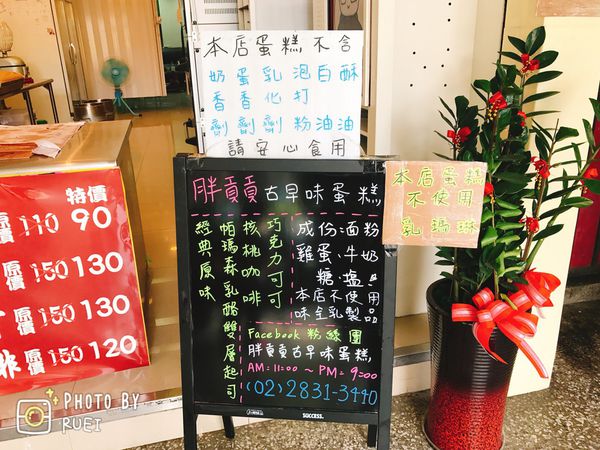 本店蛋糕不含
奶蛋乳泡白酥
香香化打
劑劑劑粉油油
請安心食用
胖貢貢古早味蛋糕
經典原味
帕瑪森乳酪雙層起司
核桃咖啡
巧克力可可
成份:麵粉
雞蛋、牛奶
糖、塩!!
本店不使用
味全乳製品
Facebook 粉絲團
胖貢貢古早味蛋糕,
AM:11:00 ~ PM:9:00
(02)2831-3440
SUCCESS.
本店蛋糕
不使用
乳瑪琳
特價
原價110 90
原價150 130
原價150 130
原價150 120
PHOTO BY
RUEI